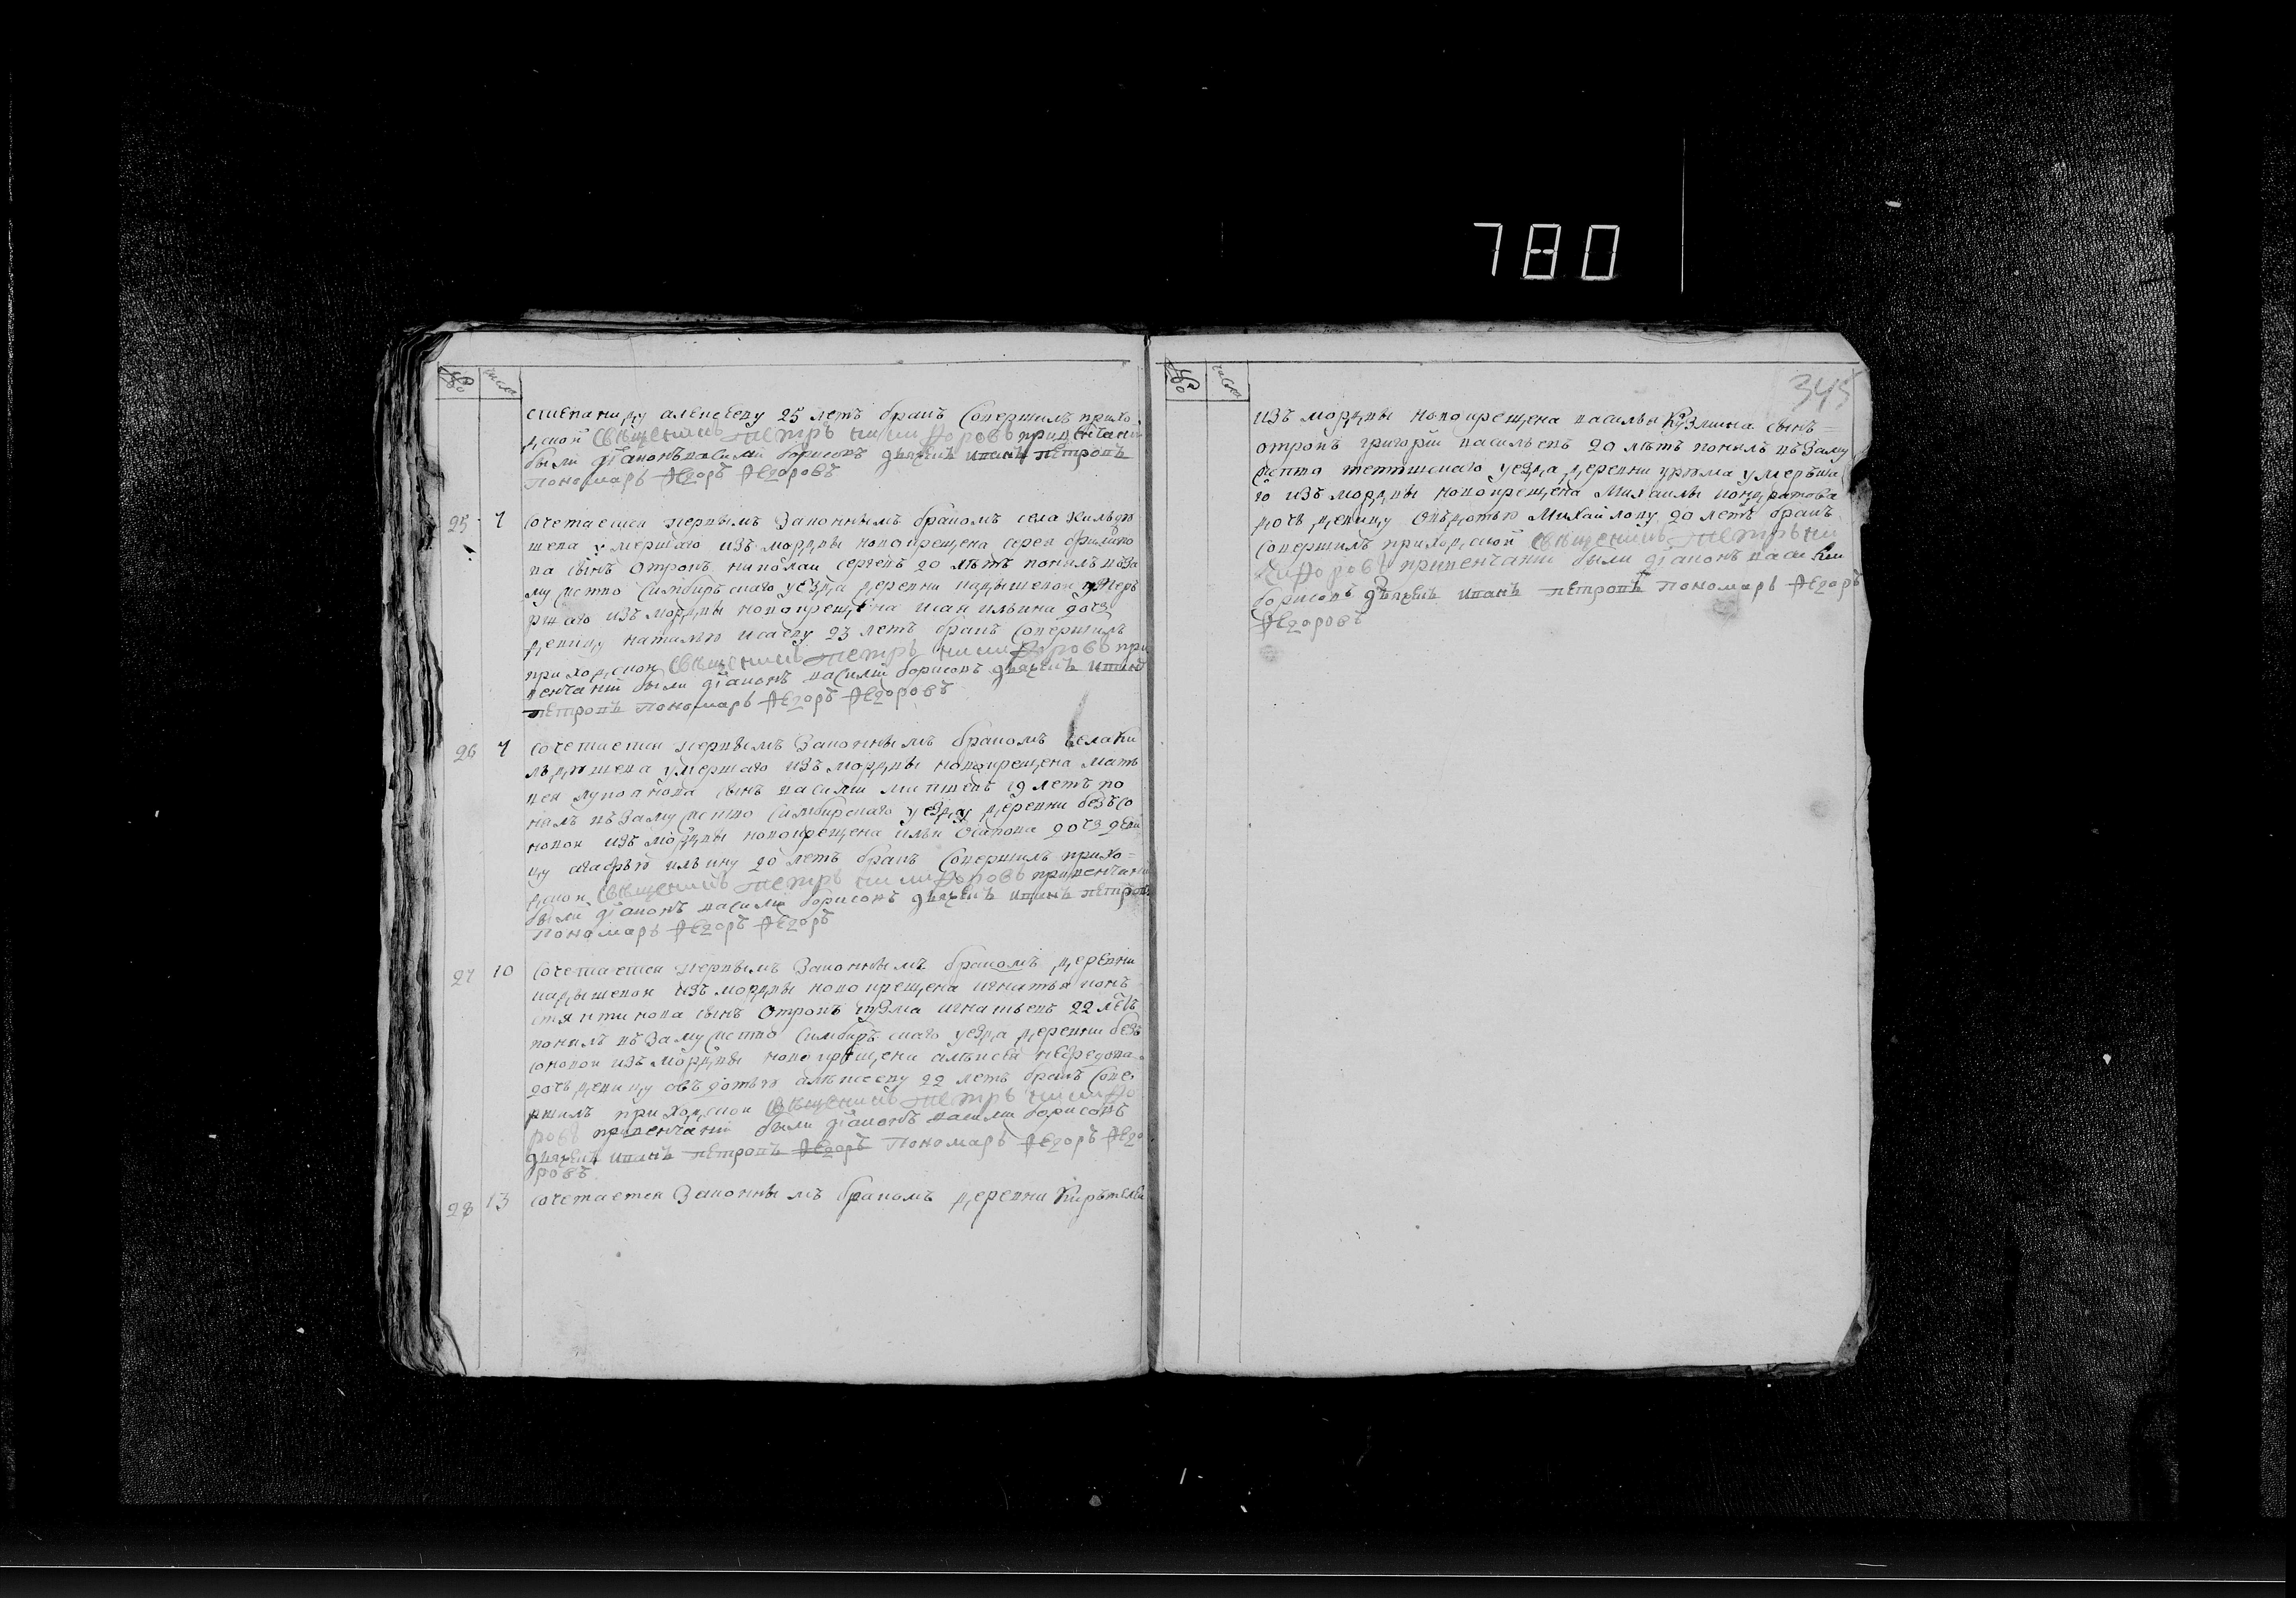 780
№ числа
степаниду алексееву 25 летъ бракъ совершилъ прихо
дской священикъ Петръ никифоровъ привенчани
были дїаконъ василїй борисовъ дьячекъ иванъ петровъ
пономарь Аегоръ Аегоровъ
25 7 сочетаетса первымъ законнымъ бракомъ села Килдю
шева умершаго изъ мордвы новокрещена сергея филипо
ва сынъ отрокъ николаи сергеевъ 20 летъ понялъ взаму
мужство симбирскаго уезда деревни кадышевои умер
ршаго изъ мордвы новокрещена исаи ильина дочь
девицу наталью исаеву 23 летъ бракъ совершилъ
приходской священикъ Петръ никифоровъ при
венчанїи были дїаконъ василїй борисовъ дьячекъ иванъ
петровъ пономарь Аегоръ Аегоровъ
26 7 сочетаетса первымъ законнымъ бракомъ села Ки
лдюшева умершаго изъ мордвы новокрещена мат
вея лукоянова сынъ василїи матвеевъ 19 летъ по
нялъ взамужство симбирскаго уезду деревни безсо
новои изъ мордвы новокрещена ильи осипова дочь деви
цу агафью ильину 20 летъ бракъ совершилъ прихо=
дскои священикъ Петръ никифоровъ привенчани
были дїаконъ василїи борисовъ дьячекъ иванъ петровъ
пономарь Аегоръ Аегоръ
27 10 сочетаетса первымъ законнымъ бракомъ деревни
кадышевои изъ мордвы новокрещена игнатья конъ
стянтинова сынъ отрокъ кузма игнатьевъ 22 летъ
понялъ взамужство симбирскаго уезда деревни без
соновои изъ мордвы новокрещена алексея нефедова
дочь девицу авдотью алексееву 22 летъ бракъ сове
ршилъ приходскои священикъ Петръ никифо
ровъ привенчанїи были дїаконъ василїи борисовъ
дьячекъ иванъ петровъ Аегоръ пономарь Аегоръ Аего
ровъ
28 13 сочетаетса законнымъ бракомъ деревни Киртели
№ числа
345
изъ мордвы новокрещена василья Кузмина сынъ=
отрокъ григорїи васильевъ 20 летъ понялъ взаму
жство тетюшскаго уезда деревни урюма умерьша
го изъ мордвы новокрещена Михаилы кондратова
дочь девицу овдотью Михаилову 20 летъ бракъ
совершилъ приходской священикъ Петръ ни
кифоровъ привенчанїи были дїаконъ васи Лїи
борисовъ дьячекъ иванъ петровъ пономарь Аегоръ
Аегоровъ